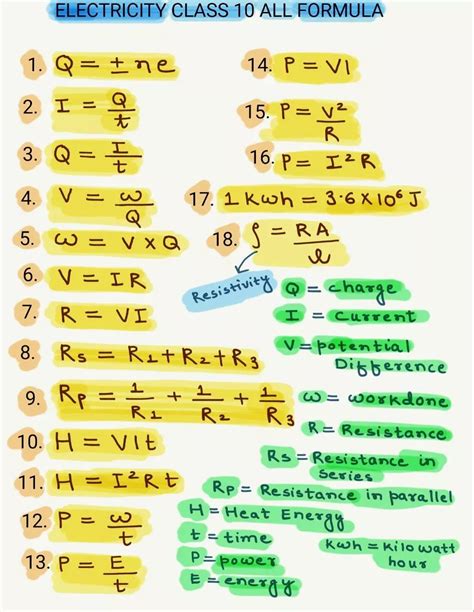 ELECTRICITY CLASS 10 ALL FORMULA
1. Q = ± n e
2. I = Q/t
3. Q = I/t
4. V = ω/Q
5. ω = V × Q
6. V = IR
7. R = VI
8. Rs = R1 + R2 + R3
9. Rp = 1/R1 + 1/R2 + 1/R3
10. H = VIt
11. H = I²Rt
12. P = ω/t
13. P = E/t
14. P = VI
15. P = V²/R
16. P = I²R
17. 1 Kwh = 3.6 × 10⁶ J
18. ρ = RA/l
Resistivity
Q = charge
I = current
V = potential
Difference
ω = workdone
R = Resistance
Rs = Resistance in
series
Rp = Resistance in parallel
H = Heat Energy
t = time
P = power
E = energy
Kwh = Kilo watt
hour